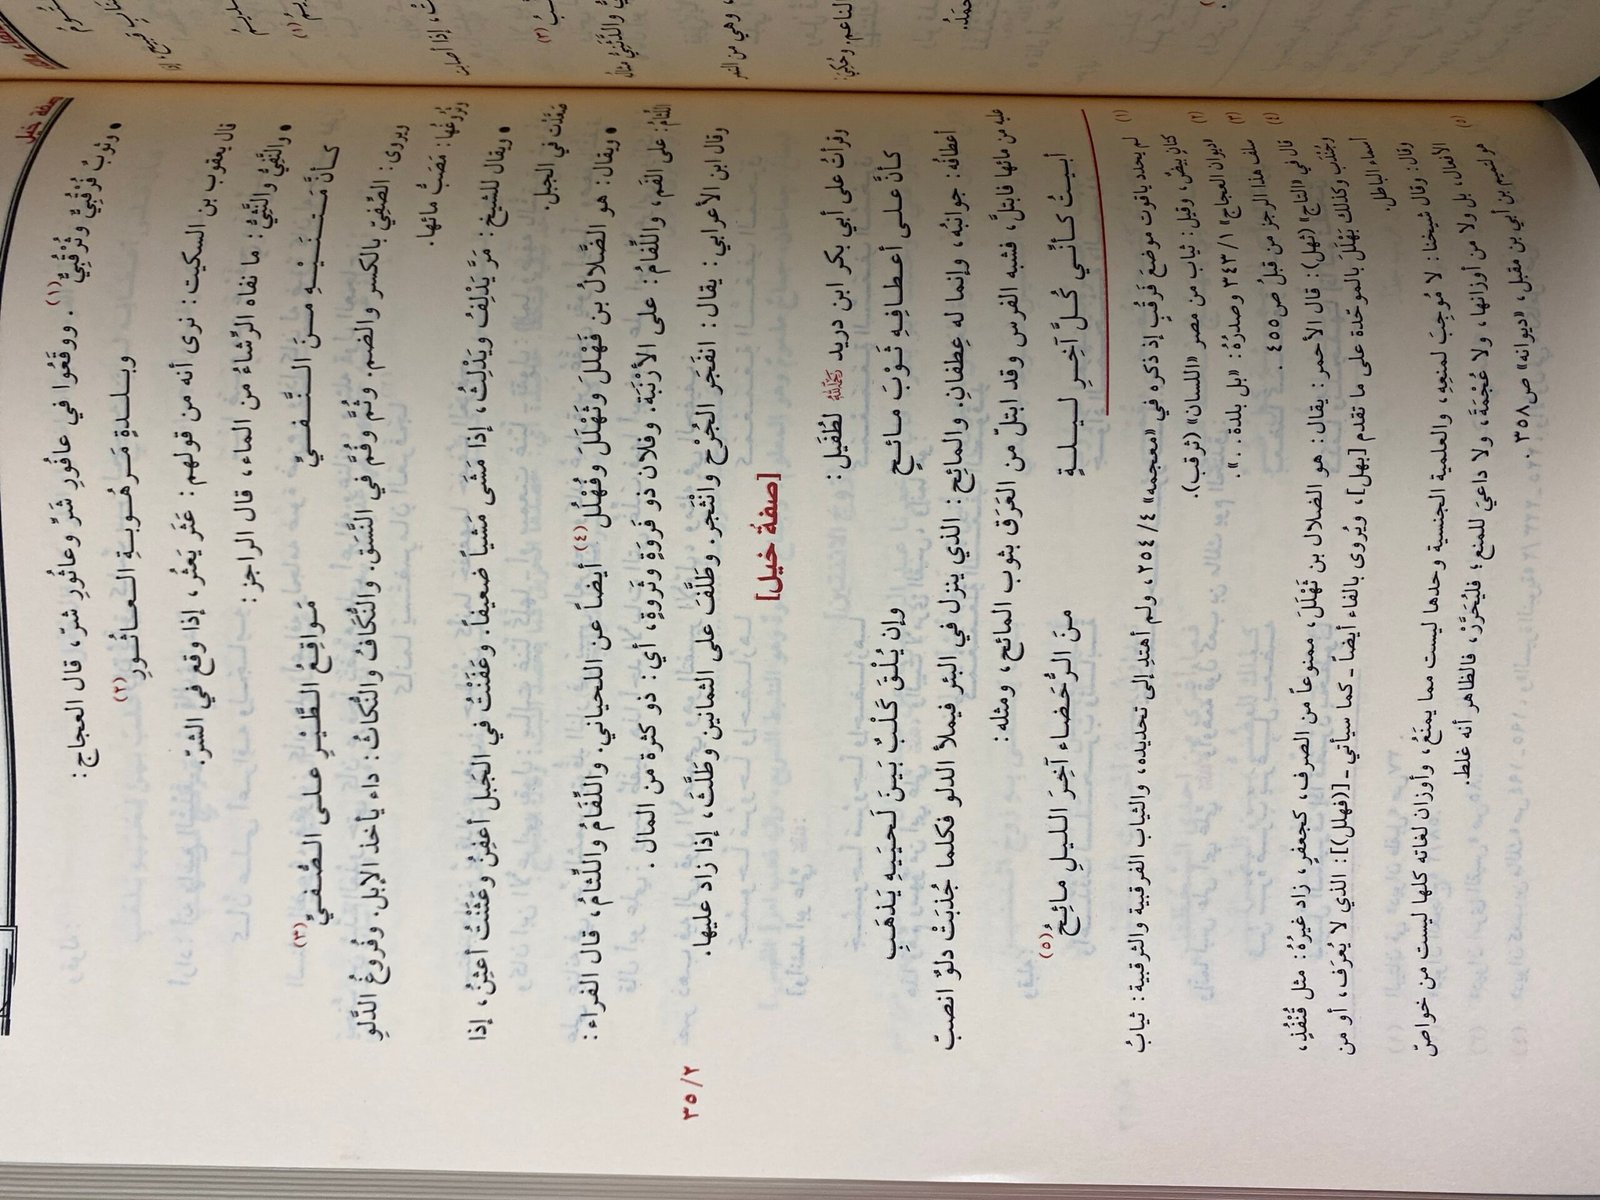 صفة خيل
• وثوبٌ فُرْقُبِيٌّ وثُرْقُبِيٌّ(١). ووقَعُوا في عافُورِ شَرٍّ وعاثُورِ شرّ، قال العجاج:
وبـلـدةٍ مَـرهُـوبـةِ الـعـاثُـورِ(٢)
قال يعقوب بن السكيت: نرى أنه من قولهم: عَثَر يَعثُر، إذا وقع في الشرّ.
• والنَّفِيُّ والنَّثِيُّ: ما نفاه الرِّشاءُ من الماء، قال الراجز:
كـأنَّ مَـتـنَـيْـهِ مـنَ الـنَّـفـيِّ مَـواقِـعُ الـطَّـيْـرِ عـلـى الـصُّـفـيِّ(٣)
ويروى: الصِّفيّ بالكسر والضم. وثُمَّ وفُمَّ في النَّسَق. والنُّكَافُ والنُّكَاثُ: داء يأخذ الإبل. وفُروغُ الدَّلوِ
وثُروغُها: مَصَبُّ مائها.
• ويقال للشيخ: مَرَّ يَدْلِفُ ويَدْلِثُ، إذا مَشَى مَشياً ضعيفاً. وعَفَنْتُ في الجَبل أعفِنُ وعَثَنْتُ أعثِنُ، إذا
صَعَّدْت في الجبل.
• ويقال: هو الضَّلالُ بن فَهْلَلَ وثَهْلَلَ وفُهْلُل(٤) أيضاً عن اللحياني. واللِّفَامُ واللِّثامُ، قال الفراء:
اللِّثامُ: على الفَم، واللِّفَامُ: على الأرْنَبَة. وفلان ذو فَروَةٍ وثَروةٍ، أي: ذو كثرة من المال.
وقال ابن الأعرابي: يقال: انفَجَر الجُرْح وانْثَجر. وطَلَّفَ على الثمانين وطَلَّثَ، إذا زاد عليها.
٣٥/٢
[صفةُ خيل]
وقرأتُ على أبي بكر ابن دريد رحمه الله لطُفَيل:
كـأنَّ عـلـى أعـطـافِـهِ ثَـوْبَ مـائـحٍ وإن يُـلْـقَ كَـلْـبٌ بَـيـنَ لَـحيَـيـهِ يَـذهَـبِ
أعطافُه: جوانبُه، وإنما له عِطفانِ. والمائح: الذي ينزل في البئر فيملأ الدلو فكلما جُذبَتْ دلوٌ انصبّ
عليه من مائها فابتلَّ، فشبه الفرس وقد ابتلّ من العَرَق بثوب المائح، ومثله:
أبـيـتُ كـأنّـي كُـلَّ آخِـرِ لـيـلـةٍ مـنَ الـرُّحَـضاءِ آخِـرَ الـلـيـلِ مـائـحُ(٥)
(١) لم يحدد ياقوت موضعَ فُرقُبٍ إذ ذكره في «معجمه» ٢٥٤/٤، ولم أهتدِ إلى تحديده، والثياب الفرقبية والثرقبية: ثيابُ
كتانٍ بِيضٌ، وقيل: ثياب من مصر «اللسان» (ثرقب).
(٢) «ديوان العجاج» ٣٤٣/١ وصدرُهُ: «بل بلدة..».
(٣) سلف هذا الرجز من قبلُ ص٤٥٥.
(٤) قال في «التاج» (ثهل): قال الأحمر: يقال: هو الضلال بن ثَهْلَلَ، ممنوعاً من الصرف، كجعفرٍ، زاد غيرُهُ: مثل قُنْفُذٍ،
وجُنْدَبٍ وكذلك بَهْلَلَ بالموحّدة على ما تقدم [بهل]، ويُروى بالفاء أيضاً - كما سيأتي - [(فهلل)]: الذي لا يُعرَف، أو من
أسماء الباطل.
وقال: وقال شيخنا: لا مُوجِبَ لمنعِهِ، والعلمية الجنسية وحدها ليست مما يمنَعُ، وأوزان لغاته كلها ليست من خواصّ
الأفعال، بل ولا من أوزانها، ولا عُجْمَةَ، ولا داعيَ للمنع؛ فليُحَرَّرْ، فالظاهر أنه غلط.
(٥) هو لتميم بن أبي بن مقبل، «ديوانه» ص٣٥٨.